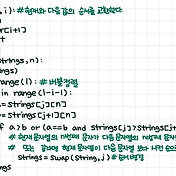 ,i): #현재와 다음값의 순서를 교환한다.
r[i+1]
t
Strings, n):
ings)
range(l): #버블정렬
in range(l-i-1):
Strings[j][n]
= Strings[j+1][n]
f a>b or (a==b and Strings[j]>Strings[j+
# 현재 문자열의 n번째 문자가 다음 문자열의 n번째 문자
# 또는 같을때 현재 문자열이 다음 문자열 보다 사전 순으
Strings = Swap(String, j) #순서변경
ngs